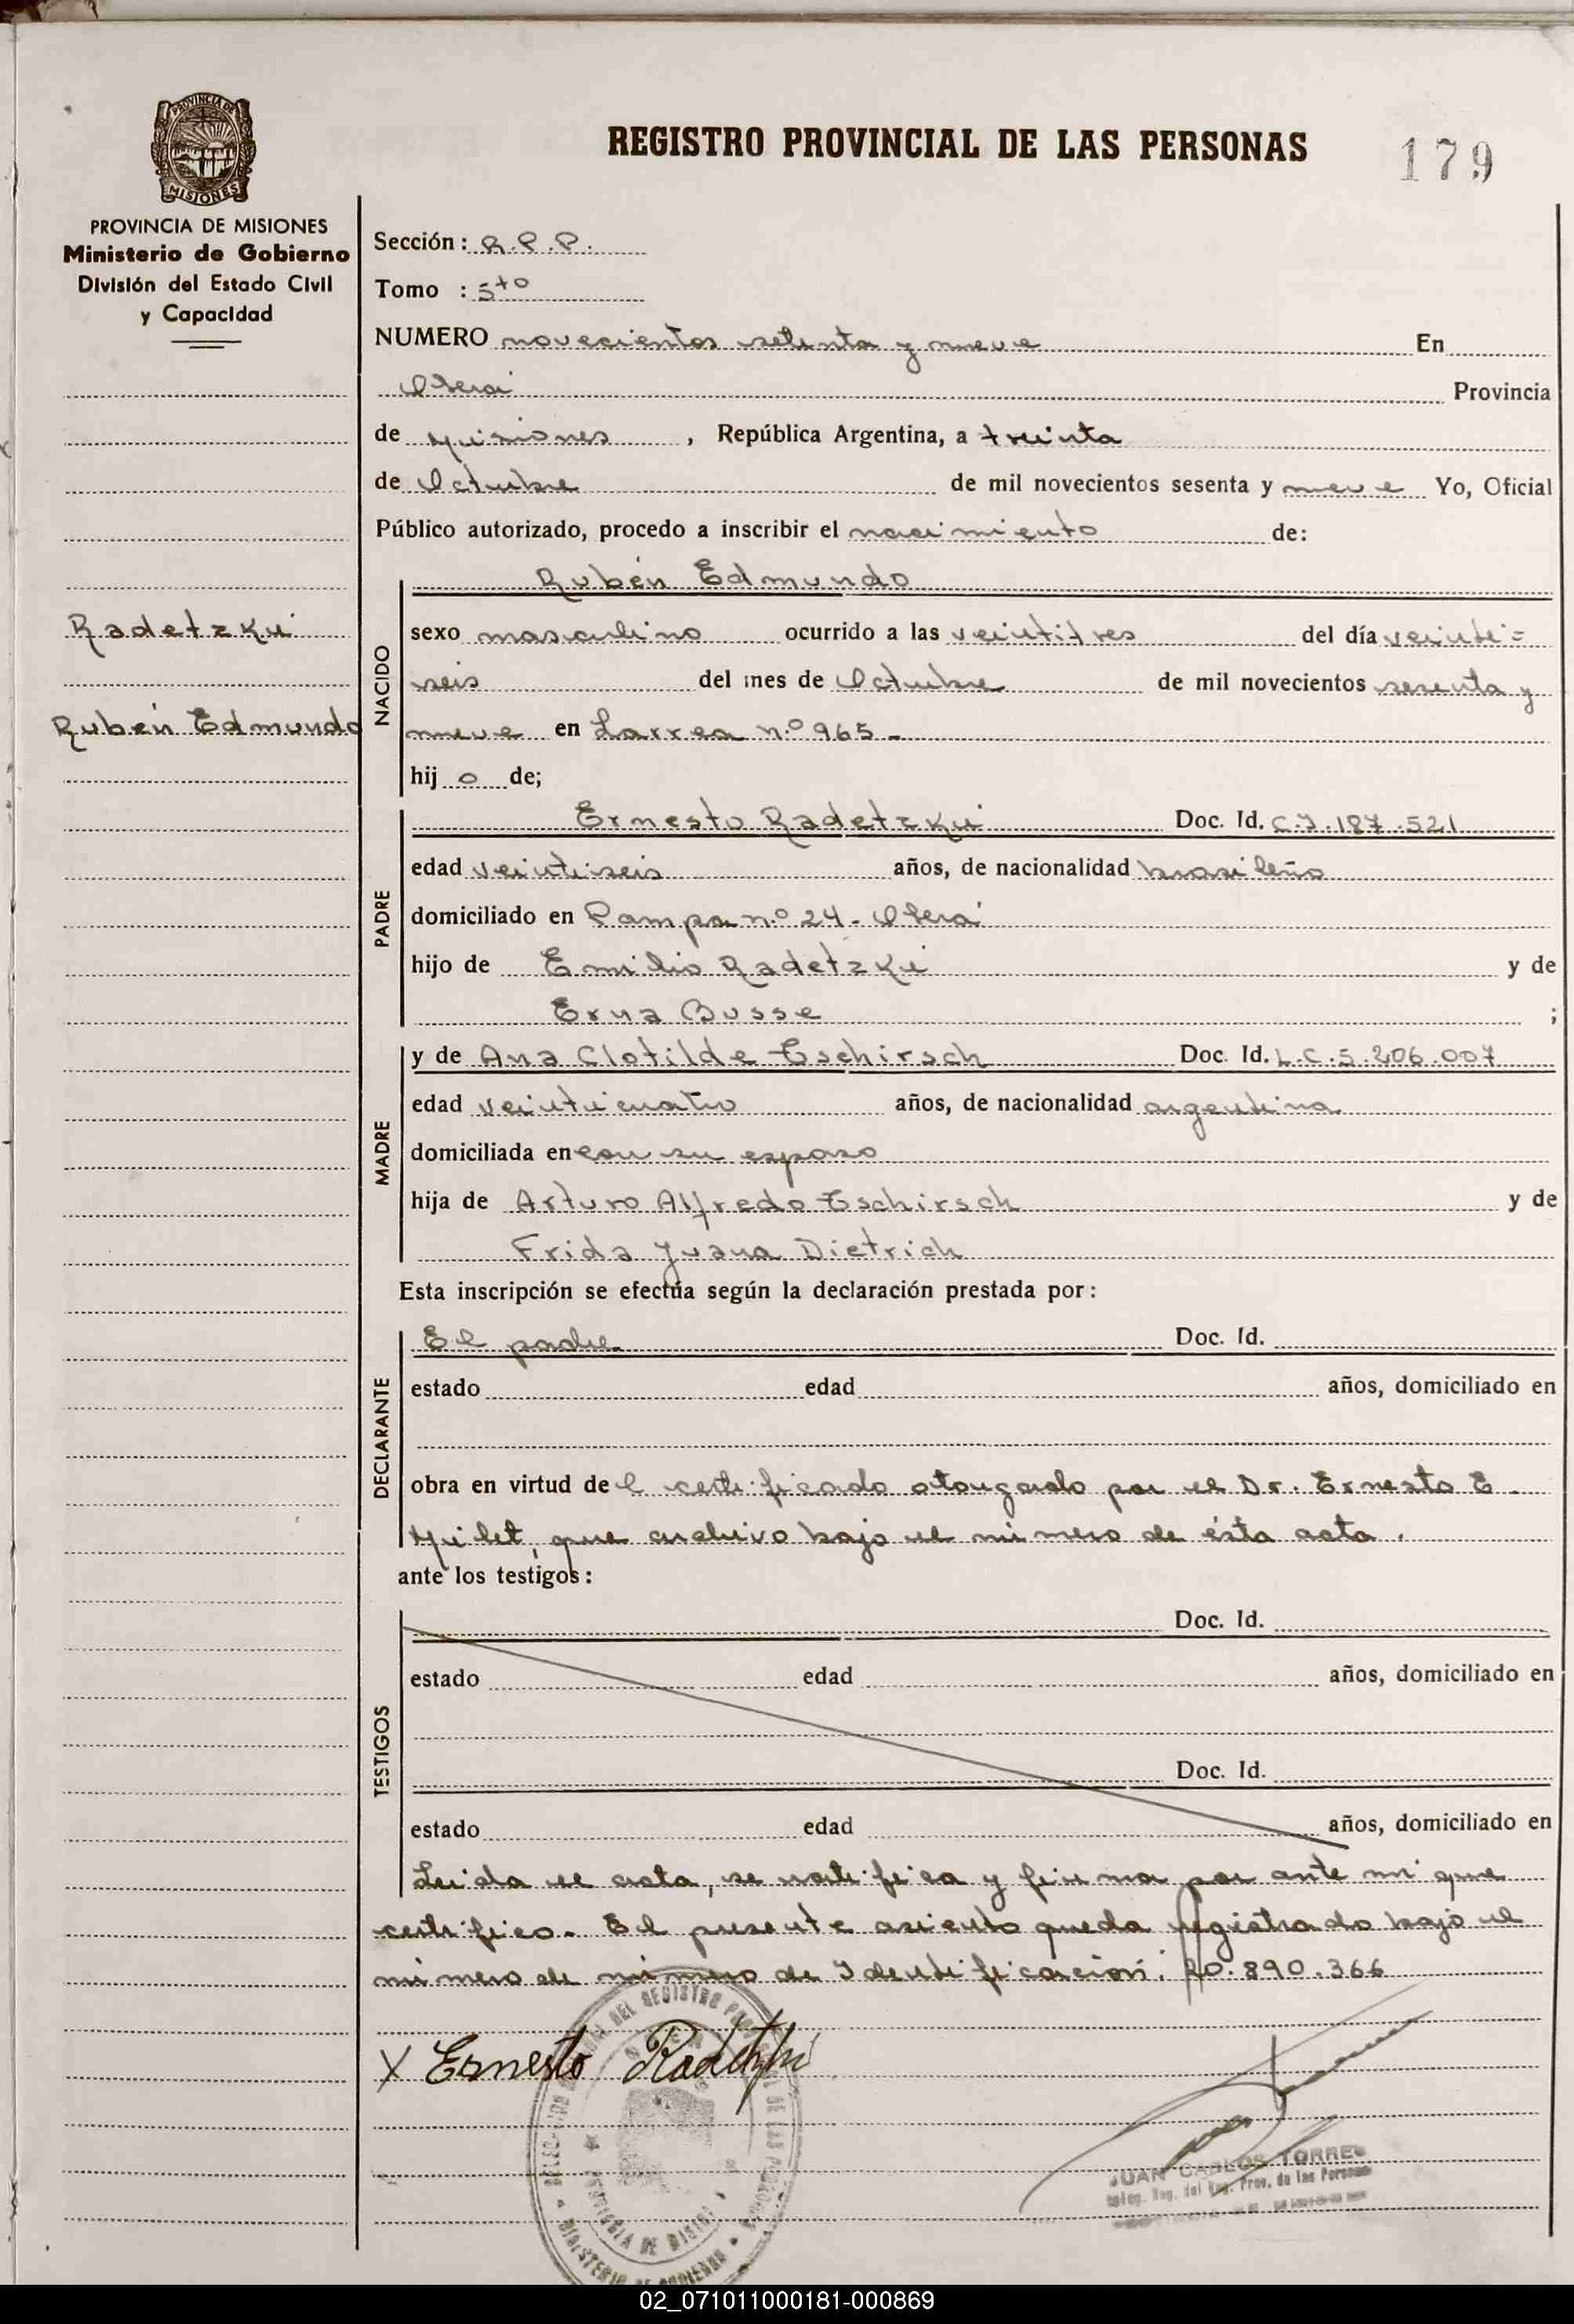 PROVINCIA DE
MISIONES
REGISTRO PROVINCIAL DE LAS PERSONAS
179
PROVINCIA DE MISIONES
Ministerio de Gobierno
División del Estado Civil
y Capacidad
Radetzki
Rubén Edmundo
Sección: R.P.P.
Tomo : 5to
NUMERO novecientos setenta y nueve En
Oberá Provincia
de Misiones , República Argentina, a treinta
de Octubre de mil novecientos sesenta y nueve Yo, Oficial
Público autorizado, procedo a inscribir el nacimiento de:
NACIDO
Rubén Edmundo
sexo masculino ocurrido a las veintitres del día veinti=
seis del mes de Octubre de mil novecientos sesenta y
nueve en Larrea n.º 965.-
hij o de;
PADRE
Ernesto Radetzki Doc. Id. C.I. 187.521
edad veintiseis años, de nacionalidad brasileña
domiciliado en Pampa n.º 24 - Oberá
hijo de Emilio Radetzki y de
Erna Busse ;
MADRE
y de Ana Clotilde Tschirsch Doc. Id. L.C. 5.206.007
edad veinticuatro años, de nacionalidad argentina
domiciliada en con su esposo
hija de Arturo Alfredo Tschirsch y de
Frida Juana Dietrich
Esta inscripción se efectúa según la declaración prestada por:
DECLARANTE
El padre Doc. Id.
estado edad años, domiciliado en
obra en virtud de l certificado otorgado por el Dr. Ernesto E.
Milet, que archivo bajo el número de ésta acta.
ante los testigos:
TESTIGOS
Doc. Id.
estado edad años, domiciliado en
Doc. Id.
estado edad años, domiciliado en
Leida el acta, se ratifica y firma por ante mi que
certifico.- El presente asiento queda registrado bajo el
número de número de Identificación: 20.890.366
X Ernesto Radetzki
JUAN CARLOS TORRES
02_071011000181-000869